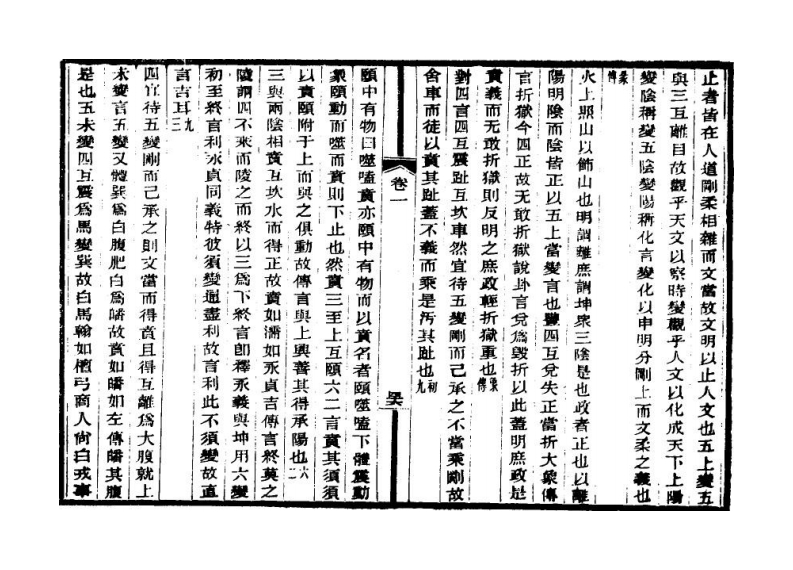 止者皆在人道剛柔相雜而文當故文明以止人文也五上變五
與三互離目故觀乎天文以察時變觀乎人文以化成天下上陽
變陰稱變五陰變陽稱化言變化以申明分剛上而文柔之義也
彖傳
火上照山以飾山也明謂離庶謂坤眾三陰是也政者正也以離
陽明陰而陰皆正以五上當變言也豐四互兌失正當折大象傳
言折獄今四正故无敢折獄說卦言兌為毀折以此蓋明庶政是
賁義而无敢折獄則反明之庶政輕折獄重也象傳
對四言四互震趾互坎車然宜待五變剛而己承之不當乘剛故
舍車而徒以賁其趾蓋不義而乘是汚其趾也初九
卷一
頤中有物曰噬嗑賁亦頤中有物而以賁名者頤噬嗑下體震動
象頤動而噬而賁則下止也然賁三至上互頤六二言賁其須須
以賁頤附于上而與之俱動故傳言與上興善其得承陽也六二
三與兩陰相賁互坎水而得正故賁如濡如永貞吉傳言終莫之
陵謂四不來而陵之而終以三為下終言卽釋永義與坤用六變
初至終言利永貞同義特彼須變通盡利故言利此不須變故直
言吉耳九三
四宜待五變剛而己承之則文當而得賁且得互離為大腹就上
未變言五變又體巽為白腹肥白為皤故賁如皤如左傳皤其腹
是也五未變四互震為馬變巽故白馬翰如檀弓商人尚白戎事